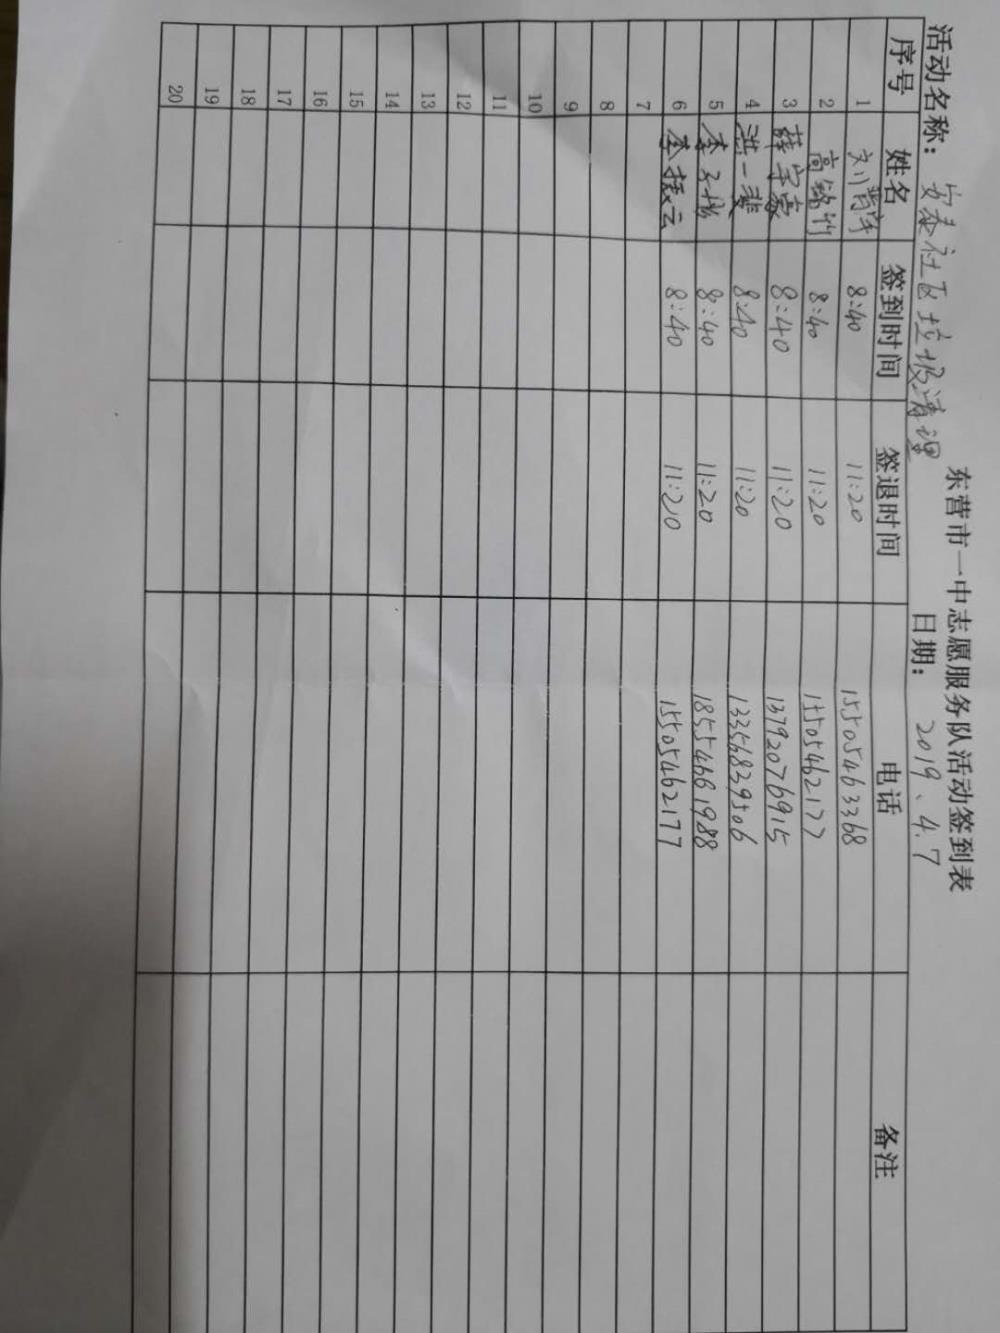 东营市一中志愿服务队活动签到表
活动名称: 安泰社区垃圾清理 日期: 2019、4.7
序号 姓名 签到时间 签退时间 电话 备注
1 刘 8:40 11:20 15505463368
2 高铭竹 8:40 11:20 15505462177
3 薛宇豪 8:40 11:20 13792076915
4 洪一斐 8:40 11:20 13356839506
5 李 8:40 11:20 18554661988
6 李振云 8:40 11:20 15505462177
7
8
9
10
11
12
13
14
15
16
17
18
19
20